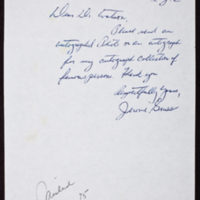 Dear Dr. Watson,
Please send an
autographed photo or an autograph
for my autograph collection of
famous persons. Thank you
Respectfully yours,
Jerome